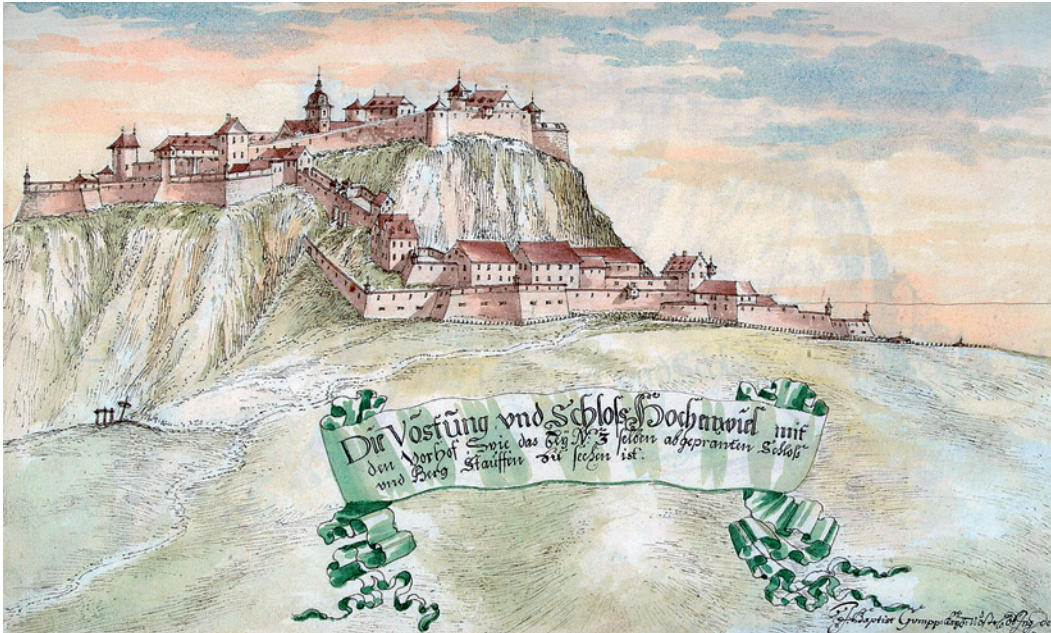 Die Vöstung vnd Schloss Hochenwiel mit
den Vorhof wie das N: 3 selben abgepranten Schloß
vnd Berg Stauffen zu sechen ist.
Baptist Gumpp